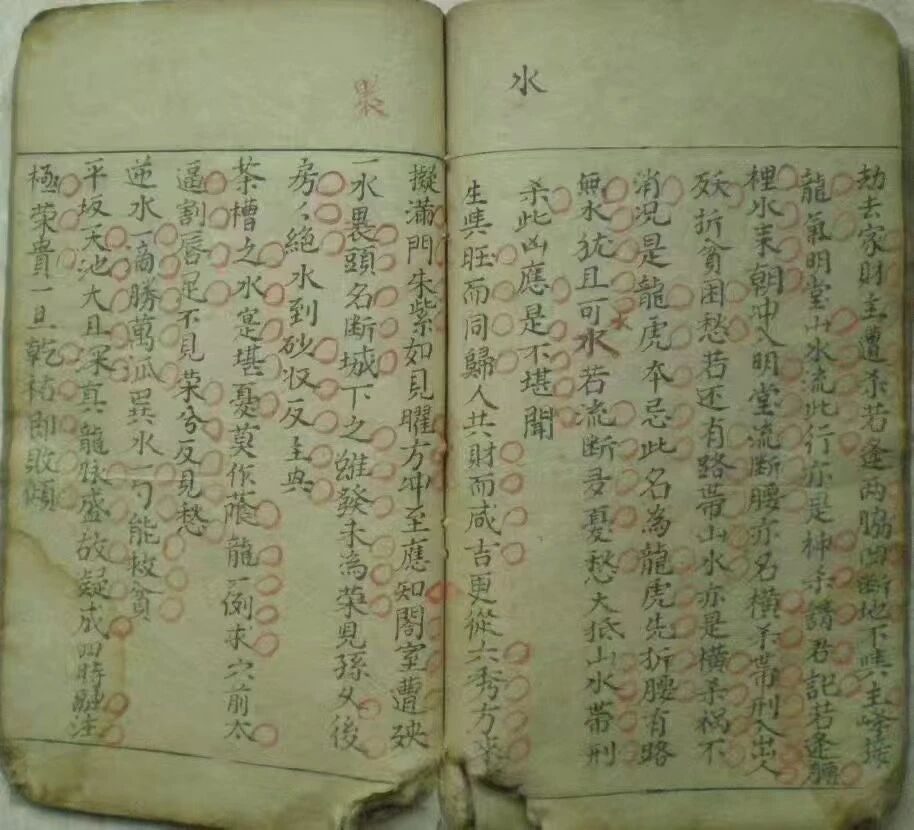 水
劫去家財主遭杀若逢两脇凹断地下興主峰接
龍氣明堂山水流此行亦是神杀請君記若逢腰
裡水来朝冲入明堂流断腰亦名横杀带刑入出人
殀折貧困愁若还有路带山水亦是横杀祸不
消况是龍虎本忌此名為龍虎先折腰有路
無水犹且可水若流断多憂愁大抵山水带刑
杀此凶應是不堪聞
生與旺而同歸人共財而咸吉更從六秀方来
巽
擬滿門朱紫如見曜方冲至應知閤室遭殃
一水裹頭名断城下之雖發未為荣見孫父後
房々絶水到砂収反主興
茶槽之水寔堪憂莫作蔭龍一例求穴前太
逼割唇足不見荣兮反見愁
逆水一滴勝萬瓜巽水一勺能救貧
平坂天池大且深真龍脉盛故凝成四時融注
極荣貴一旦乾枯即敗傾